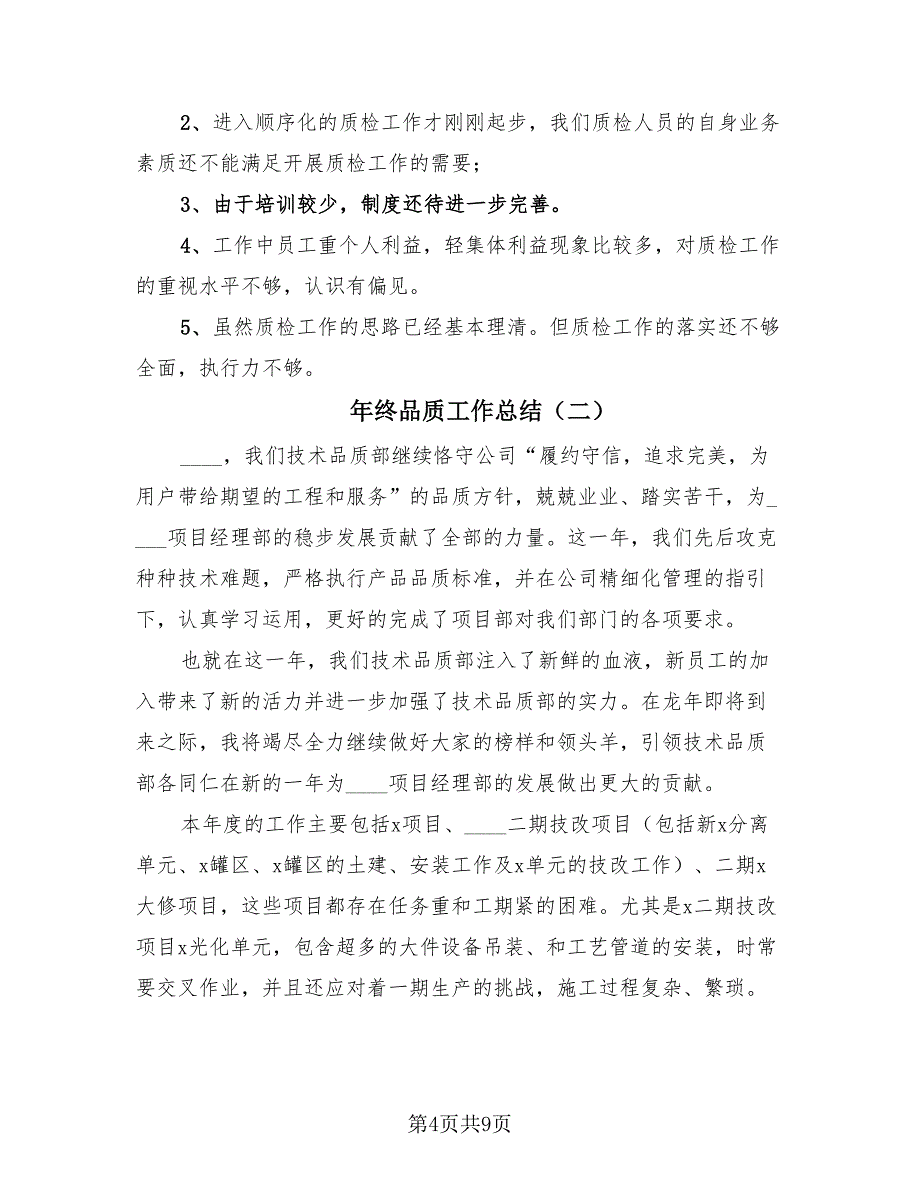 2、进入顺序化的质检工作才刚刚起步，我们质检人员的自身业务
素质还不能满足开展质检工作的需要；
3、由于培训较少，制度还待进一步完善。
4、工作中员工重个人利益，轻集体利益现象比较多，对质检工作
的重视水平不够，认识有偏见。
5、虽然质检工作的思路已经基本理清。但质检工作的落实还不够
全面，执行力不够。
年终品质工作总结（二）
____，我们技术品质部继续恪守公司“履约守信，追求完美，为
用户带给期望的工程和服务”的品质方针，兢兢业业、踏实苦干，为_
___项目经理部的稳步发展贡献了全部的力量。这一年，我们先后攻克
种种技术难题，严格执行产品品质标准，并在公司精细化管理的指引
下，认真学习运用，更好的完成了项目部对我们部门的各项要求。
也就在这一年，我们技术品质部注入了新鲜的血液，新员工的加
入带来了新的活力并进一步加强了技术品质部的实力。在龙年即将到
来之际，我将竭尽全力继续做好大家的榜样和领头羊，引领技术品质
部各同仁在新的一年为____项目经理部的发展做出更大的贡献。
本年度的工作主要包括x项目、____二期技改项目（包括新x分离
单元、x罐区、x罐区的土建、安装工作及x单元的技改工作）、二期x
大修项目，这些项目都存在任务重和工期紧的困难。尤其是x二期技改
项目x光化单元，包含超多的大件设备吊装、和工艺管道的安装，时常
要交叉作业，并且还应对着一期生产的挑战，施工过程复杂、繁琐。
第4页共9页